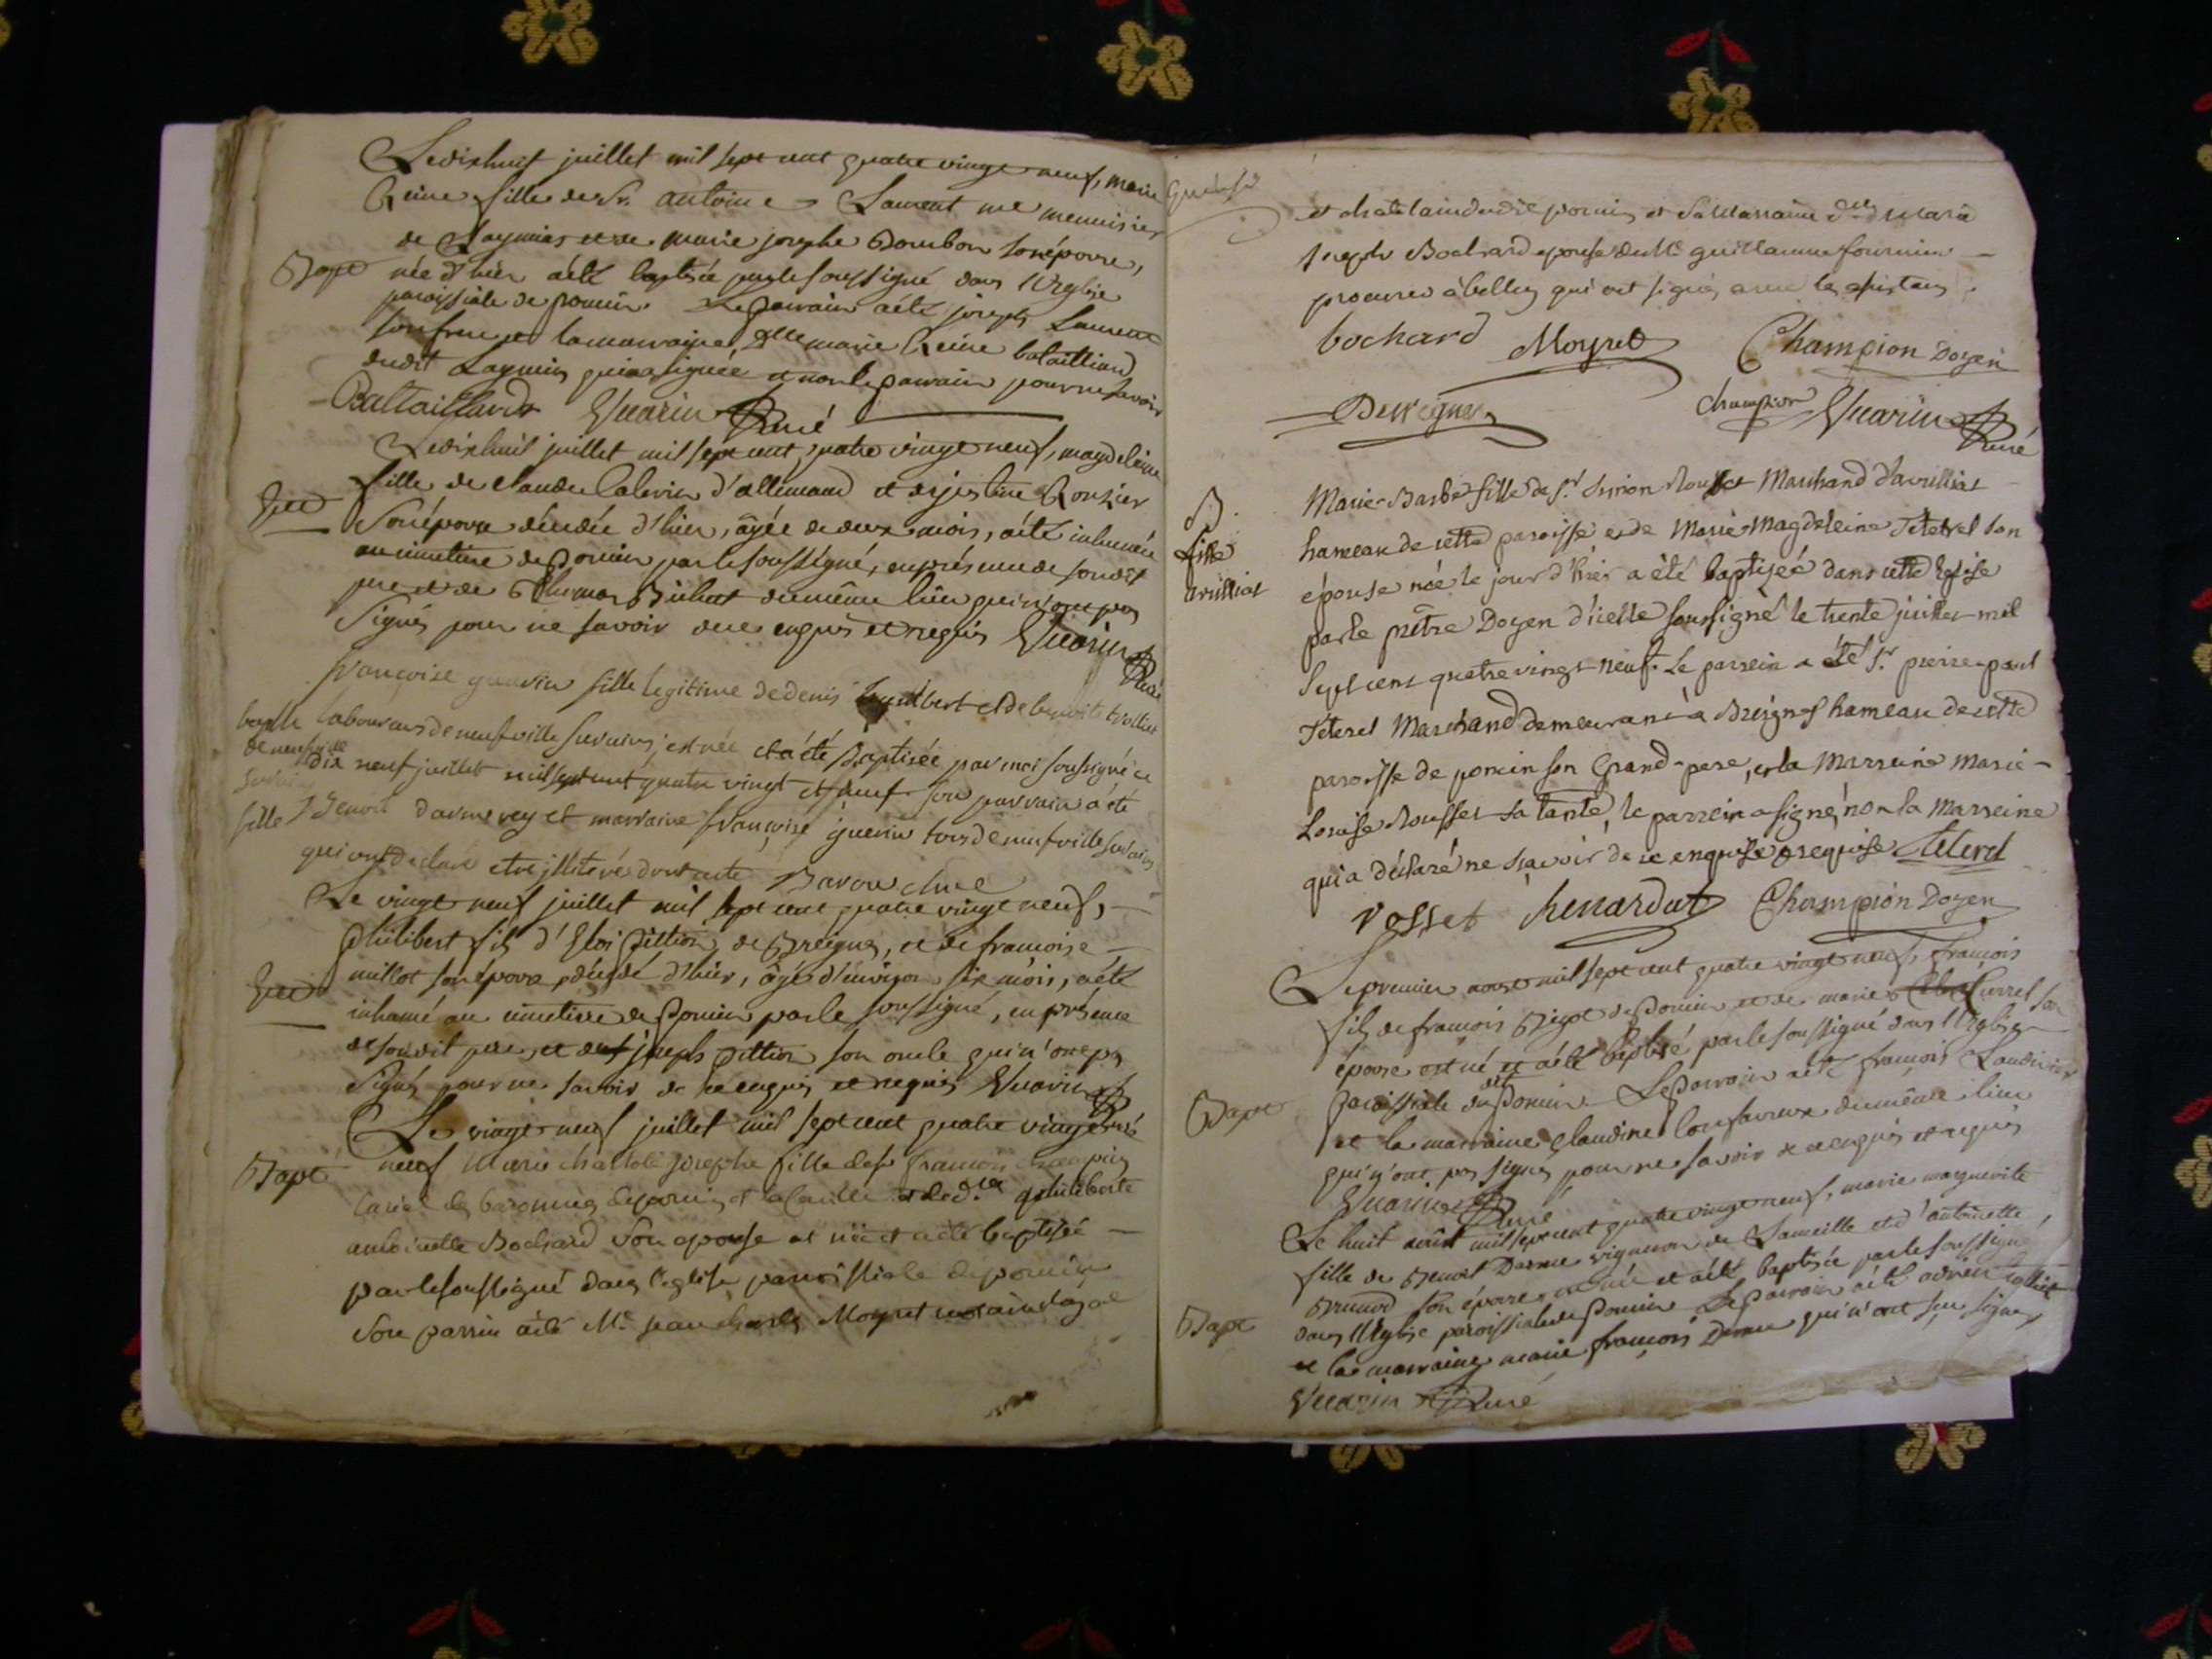 Le dix huit juillet mil sept cent quatre vingt neuf, marie
Reine fille de Sr. antoine Laurent me menuisier
de et de marie josephe Bourbon son épouse,
Bapt née d'hier a été baptisée par le soussigné dans l'Eglise
paroissiale de poncin. Le parrain a été joseph Laurent
son frere et la marraine Dlle marie Reine bataillard
dudit qui a signée et non le parrain pour ne savoir
Battaillard Guarin Curé
Le dix huit juillet mil sept cent quatre vingt neuf, magdeleine
fille de claude d'allemand et de justine
son épouse décédée d'hier, âgée de deux mois, a été inhumée
au cimetiere de Poncin par le soussigné, en présence de son dit
pere et de Thomas du même lieu qui n'ont pas
signés pour ne savoir de ce enquis et requis Guarin Curé
françoise guerin fille legitime de denis et de benoite
bapt laboureurs de neufville sur ains, est née et a été Baptisée par moi soussigné ce
de neufville dix neuf juillet mil sept cent quatre vingt et neuf son parrain a été
fille Benoit et marraine françoise guerin tous de neufville sur ains
qui ont declaré etre illiteré dont acte Baron curé
Le vingt neuf juillet mil sept cent quatre vingt neuf,
Philibert fils d'Eloi Pittion de Breignes, et de francoise
millot son épouse, décédé d'hier, âgé d'environ six mois, a été
inhumé au cimetiere de Poncin par le soussigné, en présence
de son dit pere, et de joseph pittion son oncle qui n'ont pas
signés pour ne savoir de ce enquis et requis Guarin Curé
Le vingt neuf juillet mil sept cent quatre vingt
Bapt neuf Marie josephe fille de Sr françois champion
des baronnies de poncin et la et de d.lle philiberte
antoinette Bochard son epouse est née et a été baptisée
par le soussigné dans l'eglise paroissiale de poncin
son parrin a été Me jean charles Moyret
et chatelain dudit poncin et sa marraine dlle maria
joseph Bochard epouse de Me guillaume fournier
procureur à belley qui ont signés avec les assistans.
bochard Moyret Champion Doyen
champion Guarin Curé
B. Marie-Barbe fille de Sr. Simon Rousset Marchand d'avrilliat
fille hameau de cette paroisse et de Marie Magdeleine Téterel son
avrilliat épouse née le jour d'hier a été baptisée dans cette Eglise
par le prêtre Doyen d'icelle soussigné le trente juillet mil
sept cens quatre vingt neuf. Le parrein a été Sr. pierre-paul
Téterel Marchand demeurant à Breignes hameau de cette
paroisse de poncin son Grand-pere, et la Marreine Marie-
Louise Rousset sa tante, le parrein a signé, non la Marreine
qui a déclaré ne sçavoir de ce enquise et requise Téterel
rosset Champion Doyen
Le premier aoust mil sept cent quatre vingt neuf, françois
fils de françois de Poncin et de marie Curret son
épouse est né et a été baptisé par le soussigné dans l'Eglise
Bapt paroissiale dudit Poncin. Le Parrain a été françois
et la marraine Claudine du même lieu
qui n'ont pas signés pour ne savoir de ce enquis et requis
Guarin Curé
Le huit août mil sept cent quatre vingt neuf, marie marguerite
fille de Benoit Darme vigneron de et d'antoinette
Brunod son épouse, est née et a été baptisée par le soussigné
Bapt dans l'Eglise paroissiale de Poncin. Le parrain a été adrien
et la marraine marie françoise Darme qui n'ont su signer
Guarin Curé